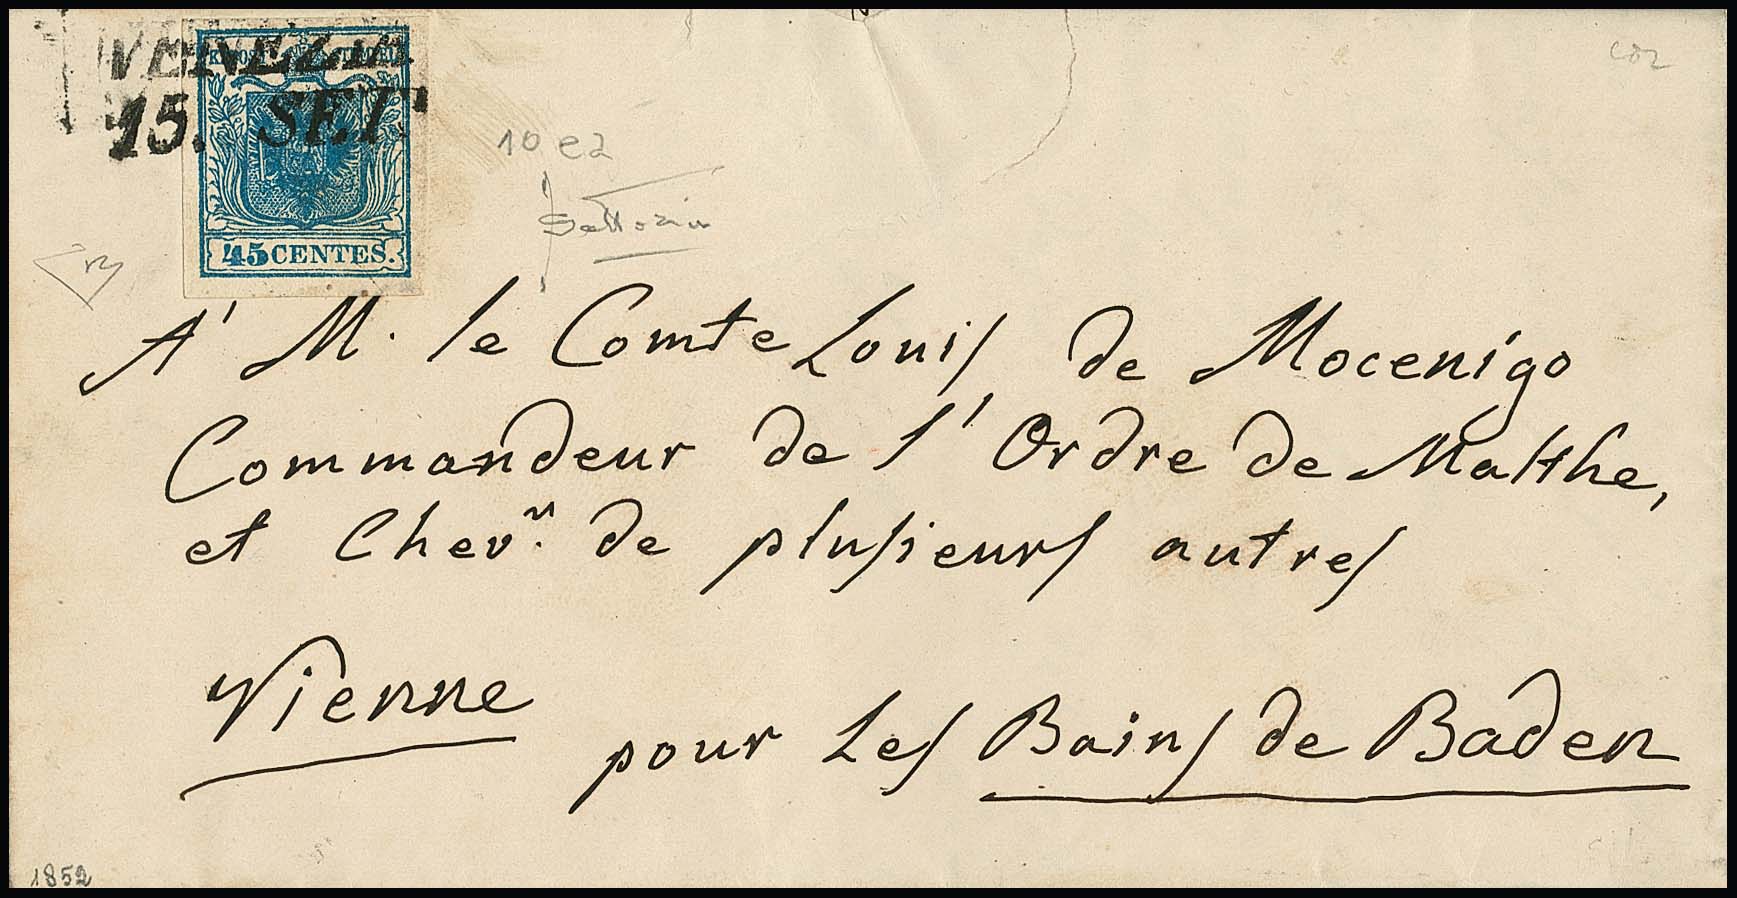 VENEZIA
15. SET.
45 CENTES.
10 e2
A' M. le Comte Louis de Mocenigo
Commandeur de l'Ordre de Malthe,
et Chevr. de plusieurs autres
Vienne
pour Les Bains de Baden
1852